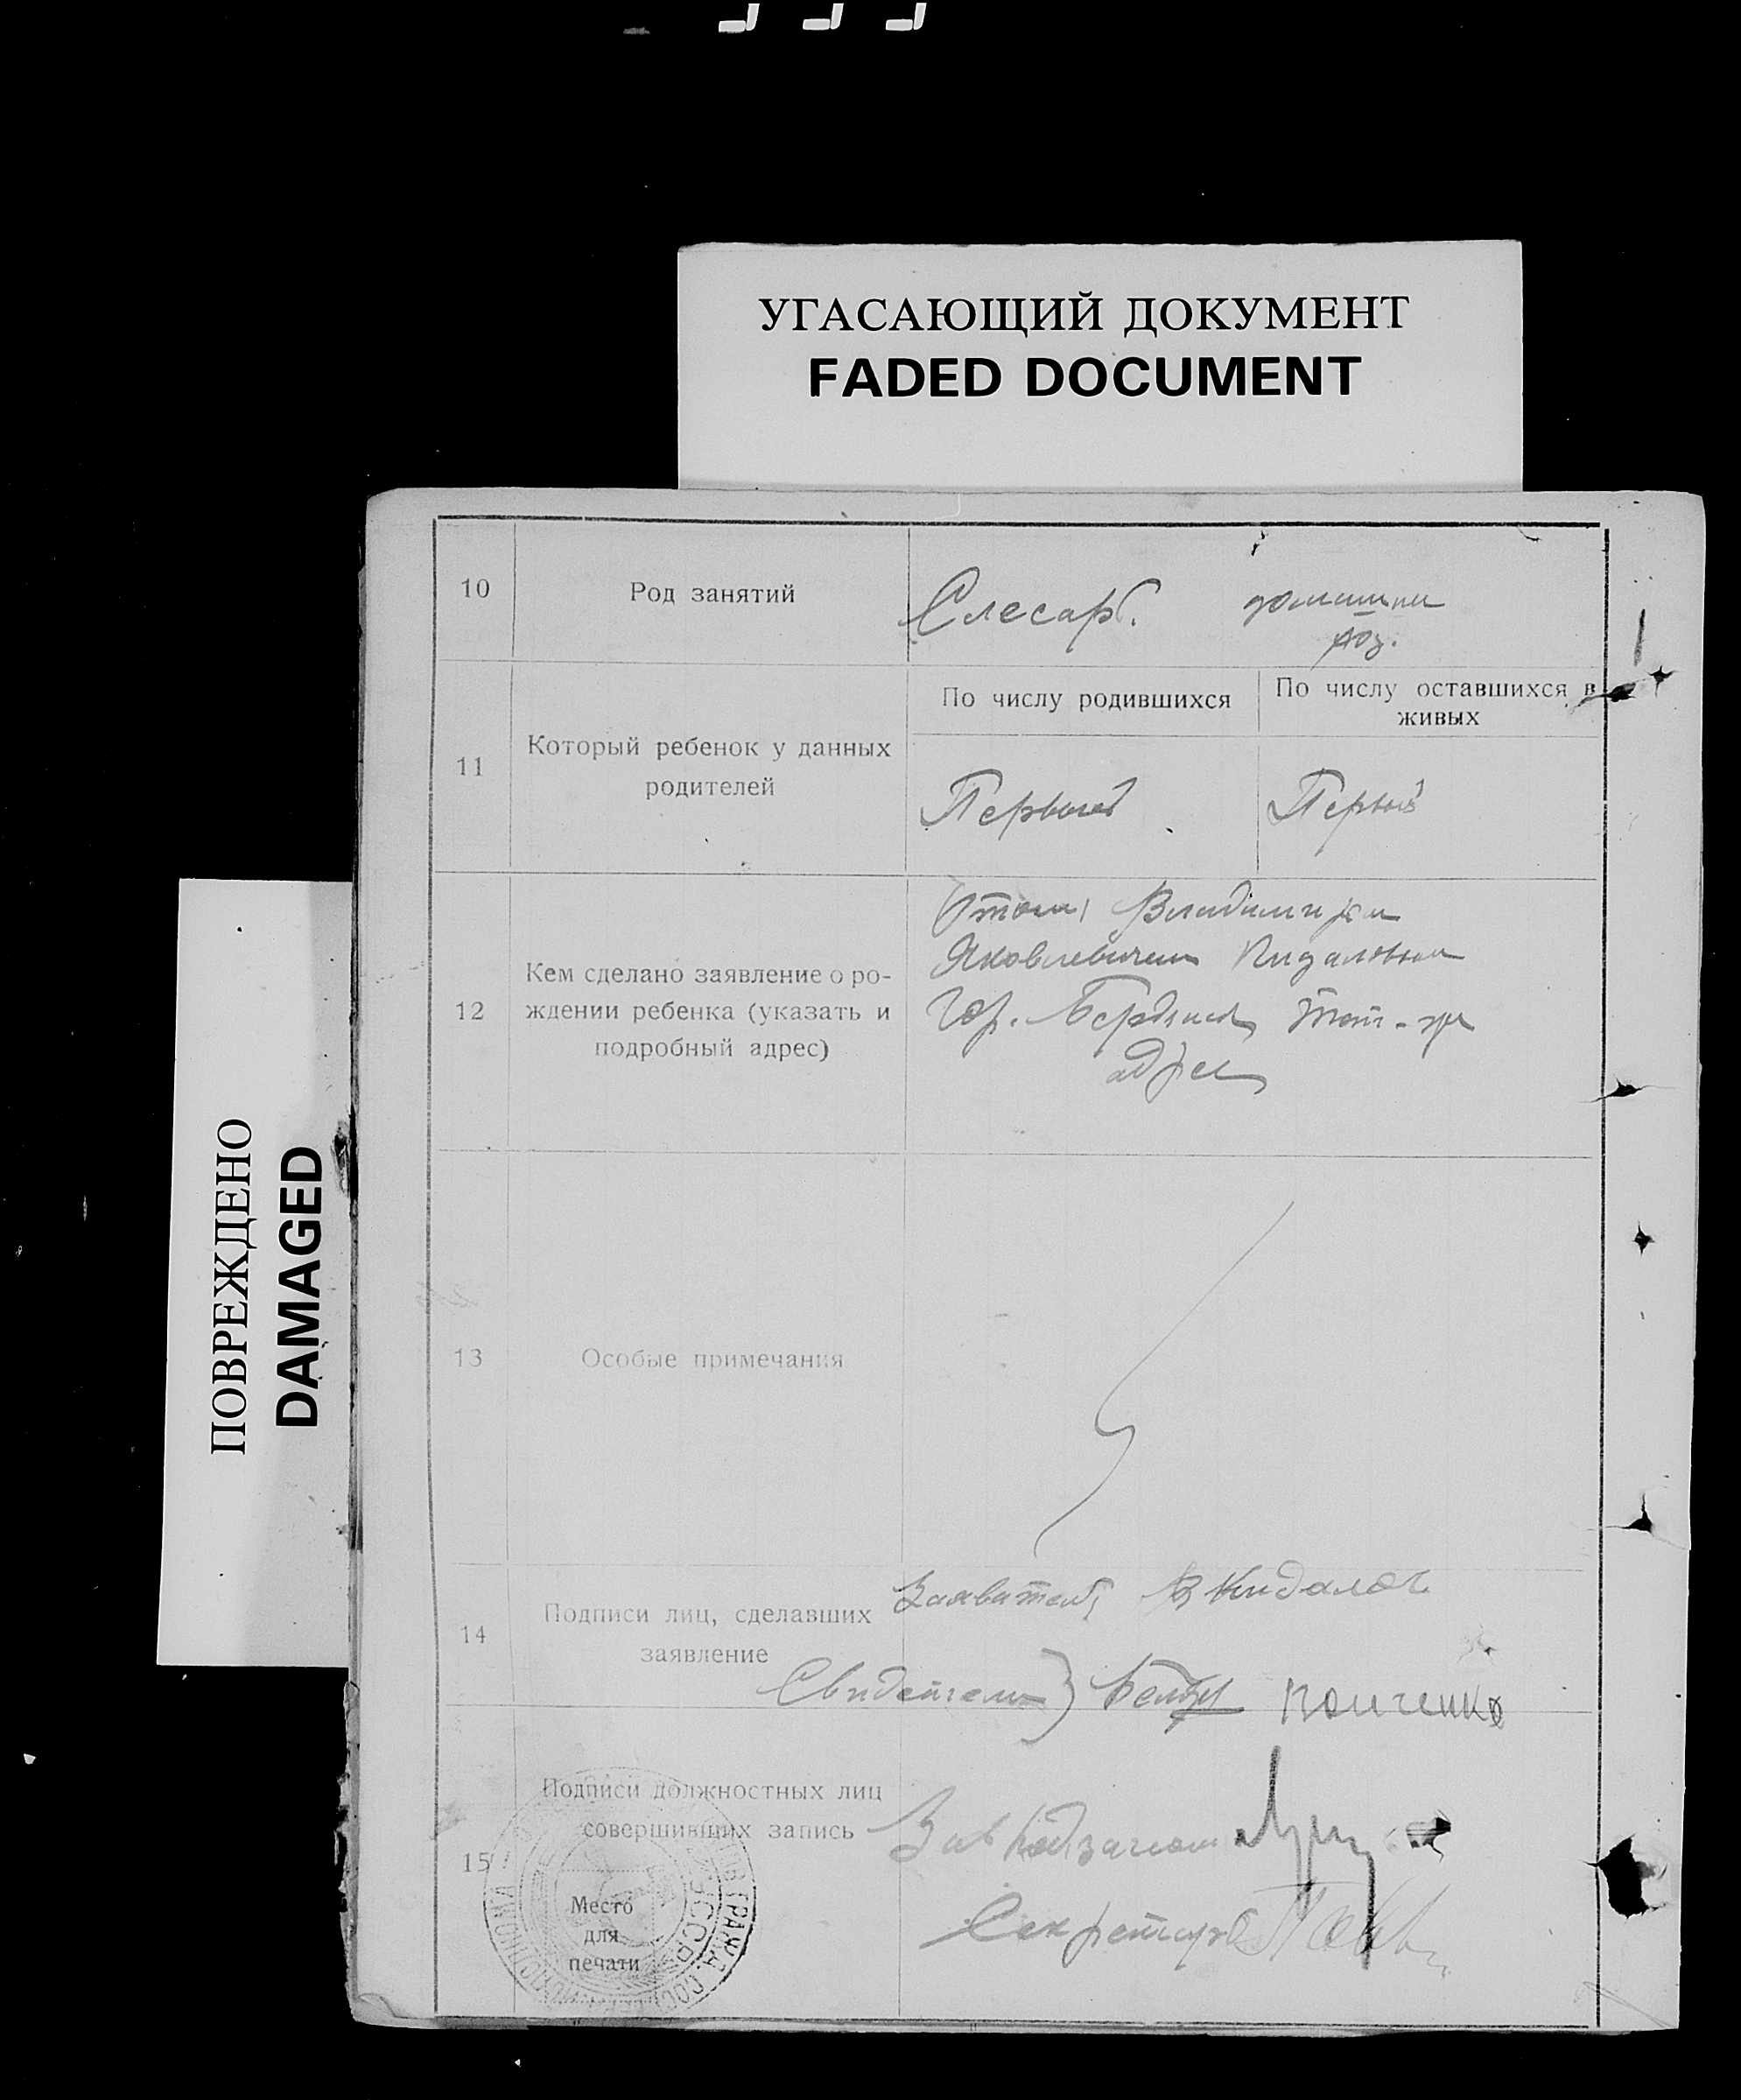 УГАСАЮЩИЙ ДОКУМЕНТ
FADED DOCUMENT
ПОВРЕЖДЕНО
DAMAGED
10
Род занятий
Слесарь.
домашн
хоз.
11
Который ребенок у данных
родителей
По числу родившихся
По числу оставшихся в
живых
Первый
Первый
12
Кем сделано заявление о ро-
ждении ребенка (указать и
подробный адрес)
Отцом Владимиром
Яковлевичем
Гор. Бердянск
адрес
13
Особые примечания
14
Подписи лиц, сделавших
заявление
Заявитель В Кидалов
Свидетели)
15
Подписи должностных лиц
совершивших запись
Место
для
печати
Зав
Секретарь